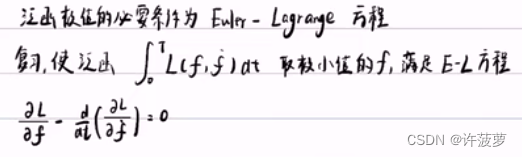 泛函极值的必要条件为 Euler-Lagrange 方程
复习,使泛函 ∫₀ᵀ L(f,ḟ)dt 取极小值的f,满足 E-L方程
∂L/∂f - d/dt(∂L/∂ḟ)=0
CSDN @许菠萝